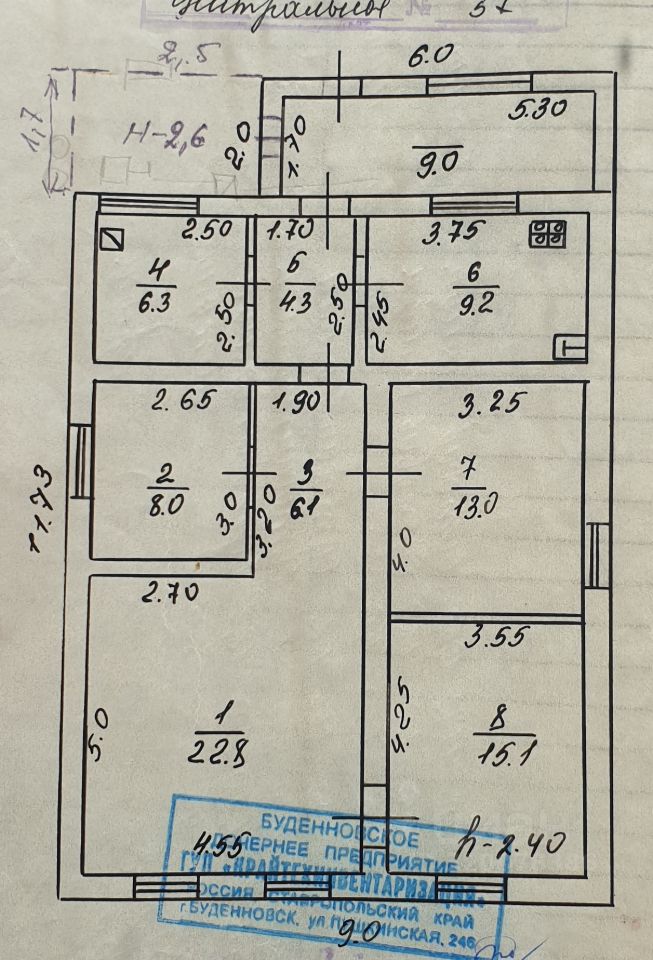 Центральное № 57
6.0
2,5
5.30
1,7
Н-2,6
2.0
1.70
9.0
2.50
1.70
3.75
4
6.3
5
4.3
6
9.2
2.50
2.50
2.45
2.65
1.90
3.25
2
8.0
3
6.1
7
13.0
3.0
3.20
4.0
11.73
2.70
3.55
1
22.8
8
15.1
5.0
4.25
4.55
h-2.40
БУДЕННОВСКОЕ
ДОЧЕРНЕЕ ПРЕДПРИЯТИЕ
ГУП «КРАЙТЕХИНВЕНТАРИЗАЦИЯ»
РОССИЯ СТАВРОПОЛЬСКИЙ КРАЙ
г.БУДЕННОВСК, ул.ПУШКИНСКАЯ, 246
9.0